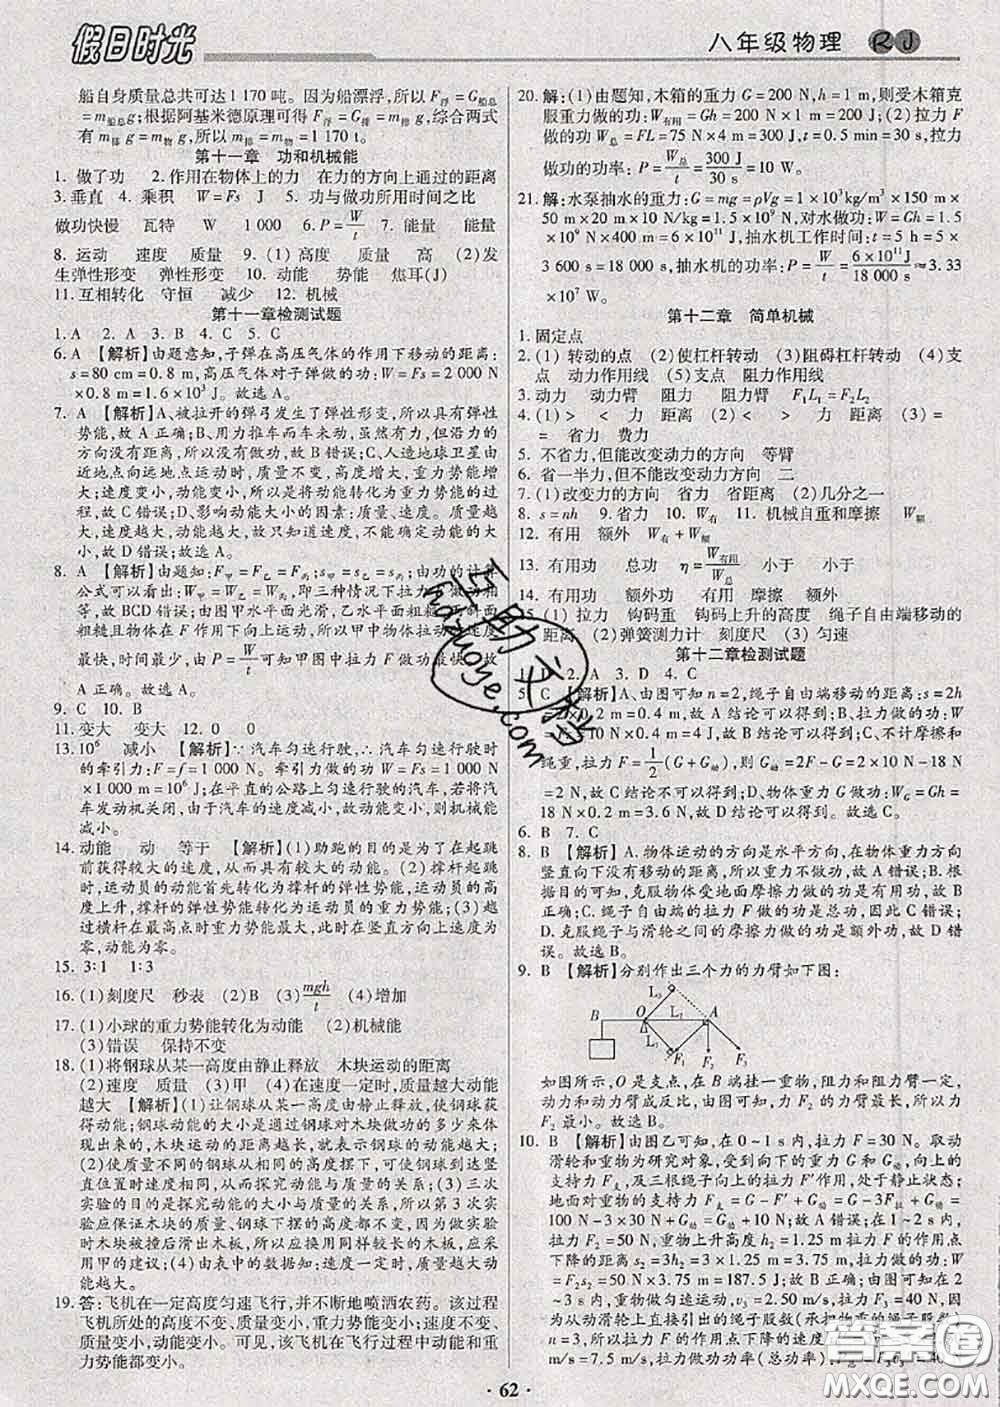 假日时光
八年级物理 RJ
船自身质量总共可达1 170吨。因为船漂浮,所以F浮=G船总=
m船总g;根据阿基米德原理可得F浮=G排=m排g,综合两式
有m排g=m船总g,所以m排=1 170 t。
第十一章 功和机械能
1. 做了功 2. 作用在物体上的力 在力的方向上通过的距离
3. 垂直 4. 乘积 W=Fs J 5. 功与做功所用时间之比
做功快慢 瓦特 W 1 000 6. P=W/t 7. 能量 能量
8. 运动 速度 质量 9. (1)高度 质量 高 (2)发
生弹性形变 弹性形变 10. 动能 势能 焦耳(J)
11. 互相转化 守恒 减少 12. 机械
第十一章检测试题
1. A 2. A 3. B 4. C 5. C
6. A 【解析】由题意知,子弹在高压气体的作用下移动的距离:
s=80 cm=0.8 m,高压气体对子弹做的功:W=Fs=2 000 N
×0.8 m=1.6×10³ J。故选A。
7. A 【解析】A、被拉开的弹弓发生了弹性形变,所以具有弹性
势能,故A正确;B、用力推车而车未动,虽然有力,但沿力的
方向没有距离,所以没有做功,故B错误;C、人造地球卫星由
近地点向远地点运动时,质量不变,高度增大,重力势能增
大;速度变小,动能变小,所以是将动能转化为重力势能的过
程,故C错误;D、影响动能大小的因素:质量、速度。质量越
大,速度越大,动能越大,故只知道速度,不能确定动能的大
小,故D错误;故选A。
8. A 【解析】由题知:F甲=F乙=F丙;s甲=s乙=s丙,由功的计算
公式可以看出:W甲=W乙=W丙,即三种情况下F做功相
等,故BCD错误;由图甲水平面光滑,乙水平面粗糙,丙斜面
粗糙且物体在F作用下向上运动,所以甲中物体运动速度
最快,时间最少,由P=W/t可知甲图中拉力F做功最快。故
A正确。故选A。
9. C 10. B
11. 变大 变大 12. 0 0
13. 10⁶ 减小 【解析】∵汽车匀速行驶,∴汽车匀速行驶时
的牵引力:F=f=1 000 N。牵引力做的功W=Fs=1 000 N
×1 000 m=10⁶ J;在平直的公路上匀速行驶的汽车,若将汽车
发动机关闭,由于汽车的速度减小,故动能变小,则机械能
减小。
14. 动能 动 等于 【解析】(1)助跑的目的是为了在起跳
前获得较大的速度,从而具有较大的动能;(2)撑杆起跳
时,运动员的动能首先转化为撑杆的弹性势能,随着运动员高
度上升,撑杆的弹性势能转化为运动员的重力势能;(3)越
过横杆在最高点时重力势能最大,此时在竖直方向上速度为
零,动能为零。
15. 3:1 1:3
16. (1)刻度尺 秒表 (2)B (3)mgh/t (4)增加
17. (1)小球的重力势能转化为动能 (2)机械能
(3)错误 保持不变
18. (1)将钢球从某一高度由静止释放 木块运动的距离
(2)速度 质量 (3)甲 (4)在速度一定时,质量越大动能
越大 【解析】(1)让钢球从某一高度由静止释放,使钢球获
得动能;钢球动能的大小是通过钢球对木块做功的多少来体
现的,木块运动的距离越长,就表示钢球的动能越大;
(2)使质量不同的钢球从相同的高度摆下,到达竖
直位置时速度相同,从而探究动能与质量的关系;(3)三次
实验的目的是探究动能的大小与质量的关系,所以第3次实
验应保证木块的质量、钢球下摆的高度都不变,做实验
时木块被撞后滑出木板,所以应换用较长的木板,故
应采用甲的方案。(4)由表中的数据知:速度一定时,质量
越大动能越大。
19. 答:飞机在一定高度匀速飞行,并不断地喷洒农药。该过程
飞机所处的高度不变、质量变小,重力势能变小;速度不变、
质量变小,动能变小。可见,该飞机在飞行过程中动能和重
力势能都变小。
20. 解:(1)由题知,木箱的重力G=200 N,h=1 m,则受木箱克
服重力做的功:W有用=Gh=200 N×1 m=200 J;(2)拉力F
做的功W总=FL=75 N×4 m=300 J,t=0.5 min=30 s,拉力
做功的功率:P=W总/t=300 J/30 s=10 W。
21. 解:水泵抽水的重力:G=mg=ρVg=1×10³ kg/m³×150 m×
50 m×20 m×10 N/kg=1.5×10⁹ N,对水做功:W=Gh=1.5
×10⁹ N×400 m=6×10¹¹ J,抽水机工作时间:t=5 h=5×
3 600 s=18 000 s,抽水机的功率:P=W/t=6×10¹¹ J/18 000 s≈3.33
×10⁷ W。
第十二章 简单机械
1. 固定点
2. (1)转动的点 (2)使杠杆转动 (3)阻碍杠杆转动 (4)支
点 动力作用线 (5)支点 阻力作用线
3. 动力 动力臂 阻力 阻力臂 F₁L₁=F₂L₂
4. (1)> < 力 距离 (2)< > 力 距离 (3)=
= 省力 费力
5. 不省力,但能改变动力的方向 等臂
6. 省一半力,但不能改变动力方向 二
7. (1)改变力的方向 省力 省距离 (2)几分之一
8. s=nh 9. 省力 10. W有 11. 机械自重和摩擦 W额
12. 有用 额外 W有+W额
13. 有用功 总功 η=W有用/W总 小于 小于
14. 有用功 额外功 有用 摩擦 额外
15. (1)拉力 钩码重 钩码上升的高度 绳子自由端移动的
距离 (2)弹簧测力计 刻度尺 (3)匀速
第十二章检测试题
1. D 2. A 3. D 4. C
5. C 【解析】A、由图可知n=2,绳子自由端移动的距离:s=2h
=2×0.2 m=0.4 m,故A结论可以得到;B、拉力做的功:W=
Fs=10 N×0.4 m=4 J,故B结论可以得到;C、不计摩擦和
绳重,拉力F=1/2(G+G动),G动=2F-G=2×10 N-18 N
=2 N,故C结论不可以得到;D、提升物体G做功:W_G=Gh=18
N×0.2 m=3.6 J,故D结论可以得到;故选C。
6. B 7. C
8. B 【解析】A. 物体运动的方向是水平方向,在物体重力方向
竖直向下没有移动距离,所以重力不做功,故A错误;B. 根
据题目的可知,克服物体受地面摩擦力做的功是有用功,故
B正确;C. 绳子自由端的拉力F做的功是总功,因此C错误;
D. 克服绳子与滑轮之间的摩擦力做的功为额外功,所以D错
误。故选B。
9. B 【解析】分别作出三个力的力臂如下图:
B O A L₃ L₂ L₁ F₁ F₂ F₃
如图所示,O是支点,在B端挂一重物,阻力和阻力臂一定,
根据动力与动力臂成反比,F₂的力臂最长,所以F₂最小,故
选B。
10. B 【解析】由图乙可知,在0~1 s内,拉力F=30 N。取动
滑轮和重物为研究对象,受到向下的重力G和G动,向上的
支持力F支,及三根绳子向上的拉力F′作用,处于静止状态;
地面对重物的支持力F支=G-F′+G动=G-3F拉+G动=
100 N-3×30 N+G动=G动+10 N;故A错误;在1~2 s内,
重物上升高度h₂=1.25 m,拉力F的作用点
下降的距离s₂=3×1.25 m=3.75 m,拉力做的功:W
=F₂s₂=50 N×3.75 m=187.5 J;故B正确;由图可知在2~
3 s内,重物做匀速运动,v₃=2.50 m/s,拉力F₃=40 N,因
为从动滑轮上直接引出的绳子股数(承担物重的绳子股数)
n=3,所以拉力F的作用点下降的速度
m/s=7.5 m/s,拉力做功功率
· 62 ·
互助文库
hazuoye.com
答案圈
MXQE.COM